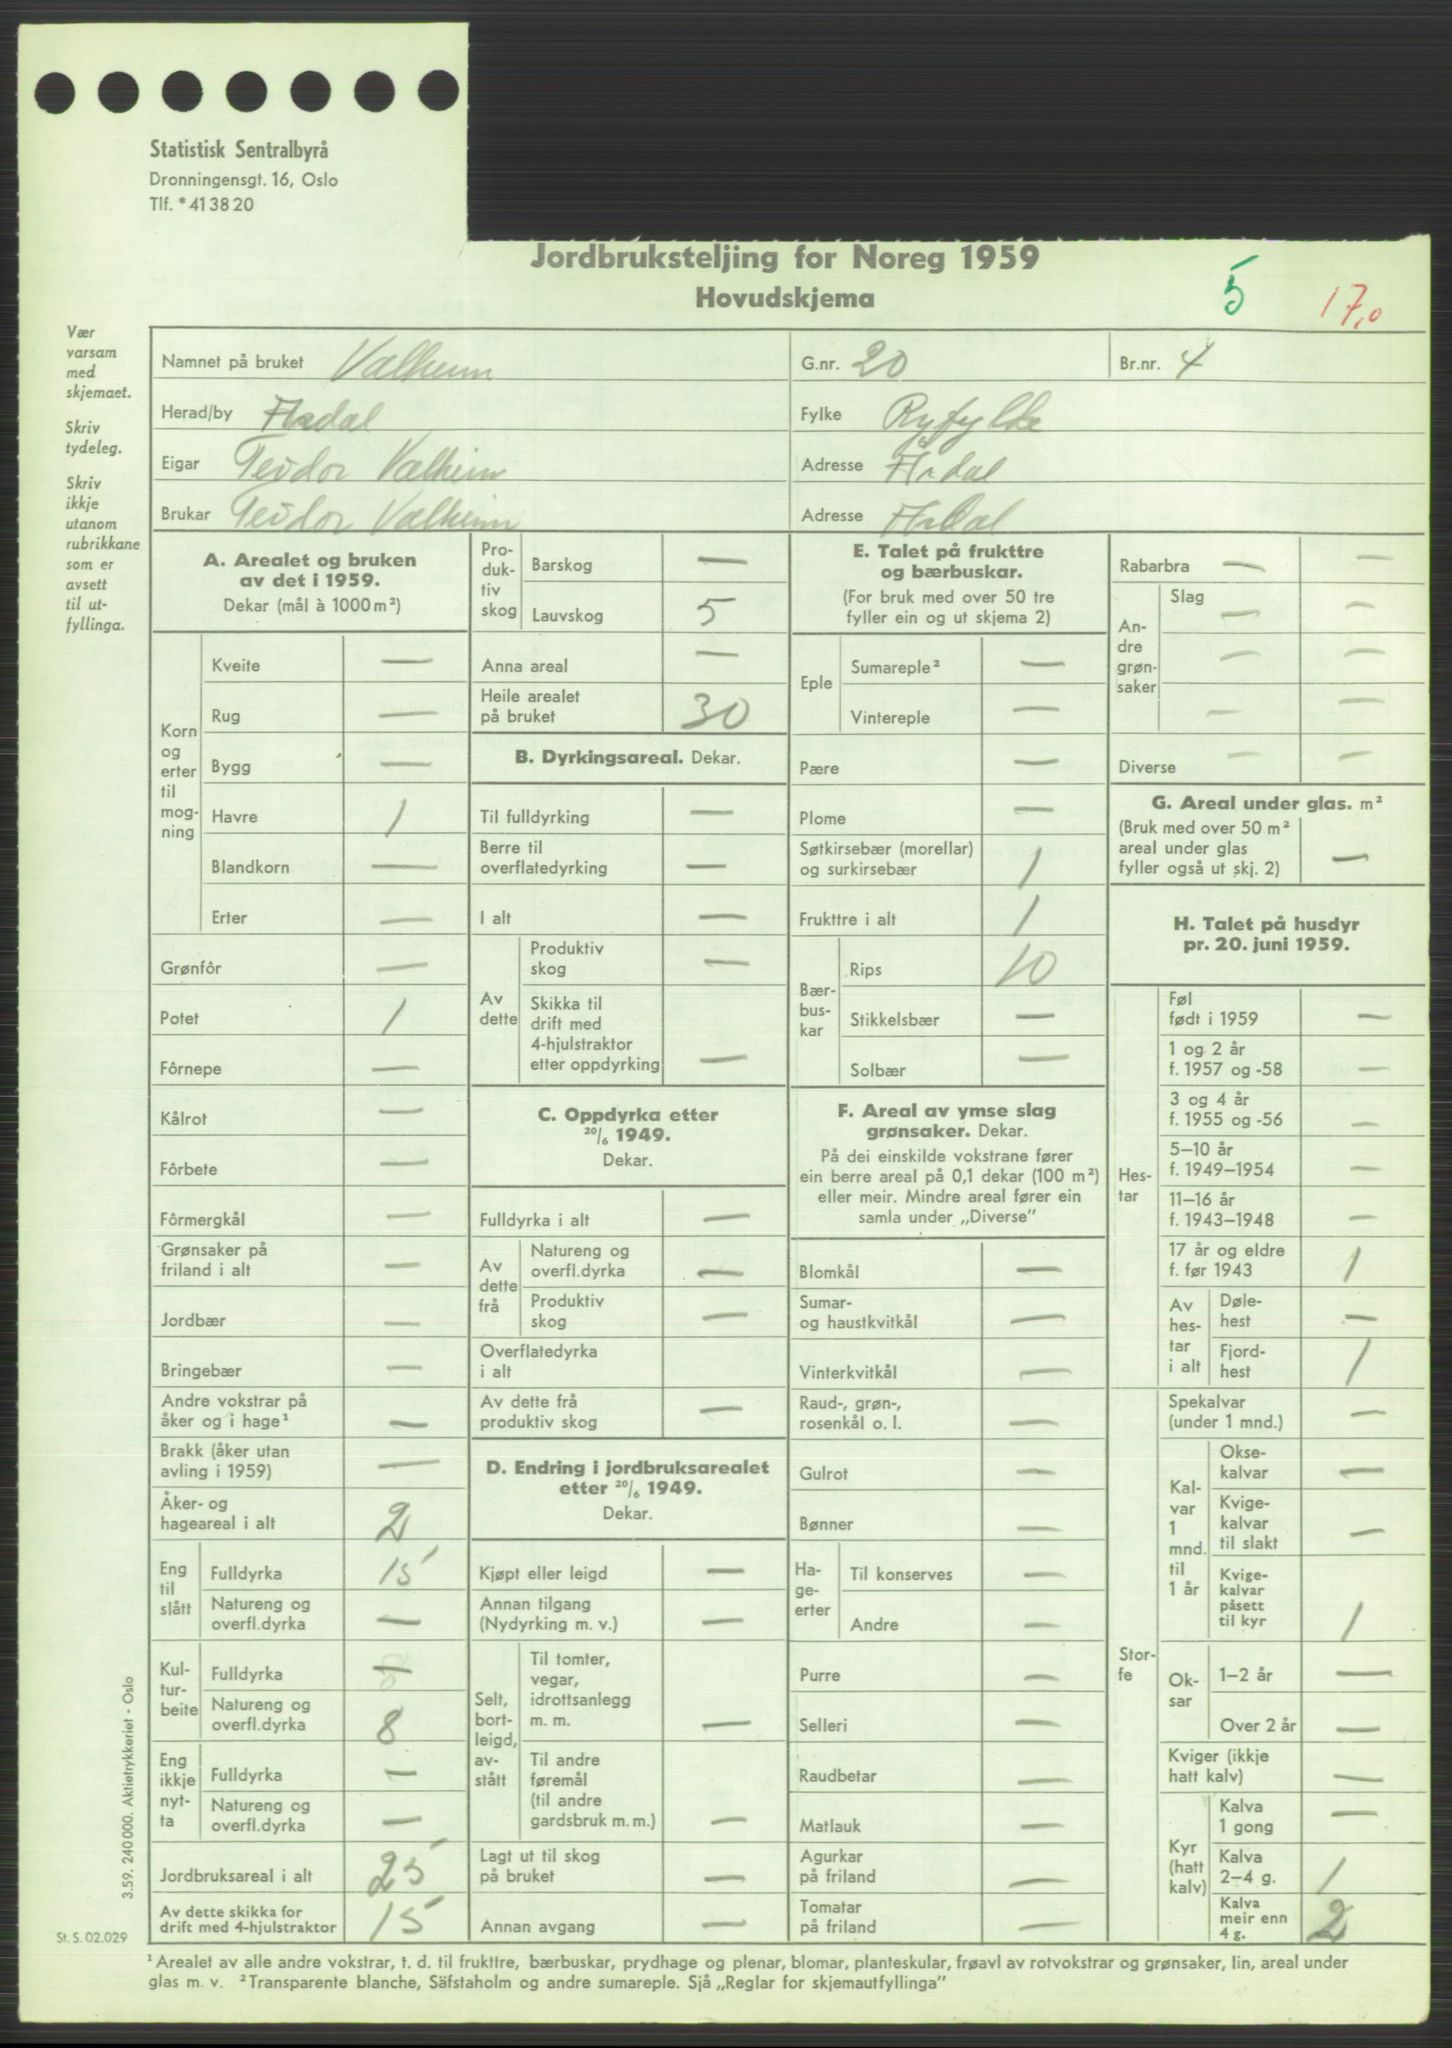 Statistisk Sentralbyrå
Dronningensgt. 16, Oslo
Tlf. *41 38 20
Jordbruksteljing for Noreg 1959
Hovudskjema
5
17,0
Vær
varsam
med
skjemaet.
Skriv
tydeleg.
Skriv
ikkje
utanom
rubrikkane
som er
avsett
til ut-
fyllinga.
Namnet på bruket Valheim
G.nr. 20
Br.nr. 4
Herad/by Årdal
Fylke Ryfylke
Eigar Teodor Valheim
Adresse Årdal
Brukar Teodor Valheim
Adresse Årdal
A. Arealet og bruken
av det i 1959.
Dekar (mål à 1000 m²)
Korn
og
erter
til
mog-
ning
Kveite —
Rug —
Bygg —
Havre 1
Blandkorn —
Erter —
Grønfôr —
Potet 1
Fôrnepe —
Kålrot —
Fôrbete —
Fôrmergkål —
Grønsaker på
friland i alt —
Jordbær —
Bringebær —
Andre vokstrar på
åker og i hage¹ —
Brakk (åker utan
avling i 1959) —
Åker- og
hageareal i alt 2
Eng
til
slått
Fulldyrka 15
Natureng og
overfl.dyrka —
Kul-
tur-
beite
Fulldyrka —
Natureng og
overfl.dyrka 8
Eng
ikkje
nyt-
ta
Fulldyrka —
Natureng og
overfl.dyrka —
Jordbruksareal i alt 25
Av dette skikka for
drift med 4-hjulstraktor 15
Pro-
duk-
tiv
skog
Barskog —
Lauvskog 5
Anna areal —
Heile arealet
på bruket 30
B. Dyrkingsareal. Dekar.
Til fulldyrking —
Berre til
overflatedyrking —
I alt —
Av
dette
Produktiv
skog —
Skikka til
drift med
4-hjulstraktor
etter oppdyrking —
C. Oppdyrka etter
20/6 1949.
Dekar.
Fulldyrka i alt —
Av
dette
frå
Natureng og
overfl.dyrka —
Produktiv
skog —
Overflatedyrka
i alt
Av dette frå
produktiv skog —
D. Endring i jordbruksarealet
etter 20/6 1949.
Dekar.
Kjøpt eller leigd —
Annan tilgang
(Nydyrking m. v.) —
Selt,
bort-
leigd,
av-
stått
Til tomter,
vegar,
idrottsanlegg
m. m. —
Til andre
føremål
(til andre
gardsbruk m. m.) —
Lagt ut til skog
på bruket —
Annan avgang —
E. Talet på frukttre
og bærbuskar.
(For bruk med over 50 tre
fyller ein og ut skjema 2)
Eple
Sumareple² —
Vintereple —
Pære —
Plome —
Søtkirsebær (morellar)
og surkirsebær 1
Frukttre i alt 1
Bær-
bus-
kar
Rips 10
Stikkelsbær —
Solbær —
F. Areal av ymse slag
grønsaker. Dekar.
På dei einskilde vokstrane fører
ein berre areal på 0,1 dekar (100 m²)
eller meir. Mindre areal fører ein
samla under „Diverse”
Blomkål —
Sumar-
og haustkvitkål —
Vinterkvitkål —
Raud-, grøn-,
rosenkål o. l. —
Gulrot —
Bønner —
Ha-
ge-
erter
Til konserves —
Andre —
Purre —
Selleri —
Raudbetar —
Matlauk —
Agurkar
på friland —
Tomatar
på friland —
Rabarbra — —
An-
dre
grøn-
saker
Slag
— —
— —
— —
Diverse — —
G. Areal under glas. m²
(Bruk med over 50 m²
areal under glas
fyller også ut skj. 2) —
H. Talet på husdyr
pr. 20. juni 1959.
Hes-
tar
Føl
født i 1959 —
1 og 2 år
f. 1957 og -58 —
3 og 4 år
f. 1955 og -56 —
5–10 år
f. 1949–1954 —
11–16 år
f. 1943–1948 —
17 år og eldre
f. før 1943 1
Av
hes-
tar
i alt
Døle-
hest —
Fjord-
hest 1
Stor-
fe
Spekalvar
(under 1 mnd.) —
Kal-
var
1
mnd.
til
1 år
Okse-
kalvar —
Kvige-
kalvar
til slakt —
Kvige-
kalvar
påsett
til kyr 1
Ok-
sar
1–2 år —
Over 2 år —
Kviger (ikkje
hatt kalv) —
Kyr
(hatt
kalv)
Kalva
1 gong —
Kalva
2–4 g. 1
Kalva
meir enn
4 g. 2
3.59. 240 000. Aktietrykkeriet - Oslo
St. S. 02.029
¹ Arealet av alle andre vokstrar, t. d. til frukttre, bærbuskar, prydhage og plenar, blomar, planteskular, frøavl av rotvokstrar og grønsaker, lin, areal under
glas m. v. ² Transparente blanche, Säfstaholm og andre sumareple. Sjå „Reglar for skjemautfyllinga”